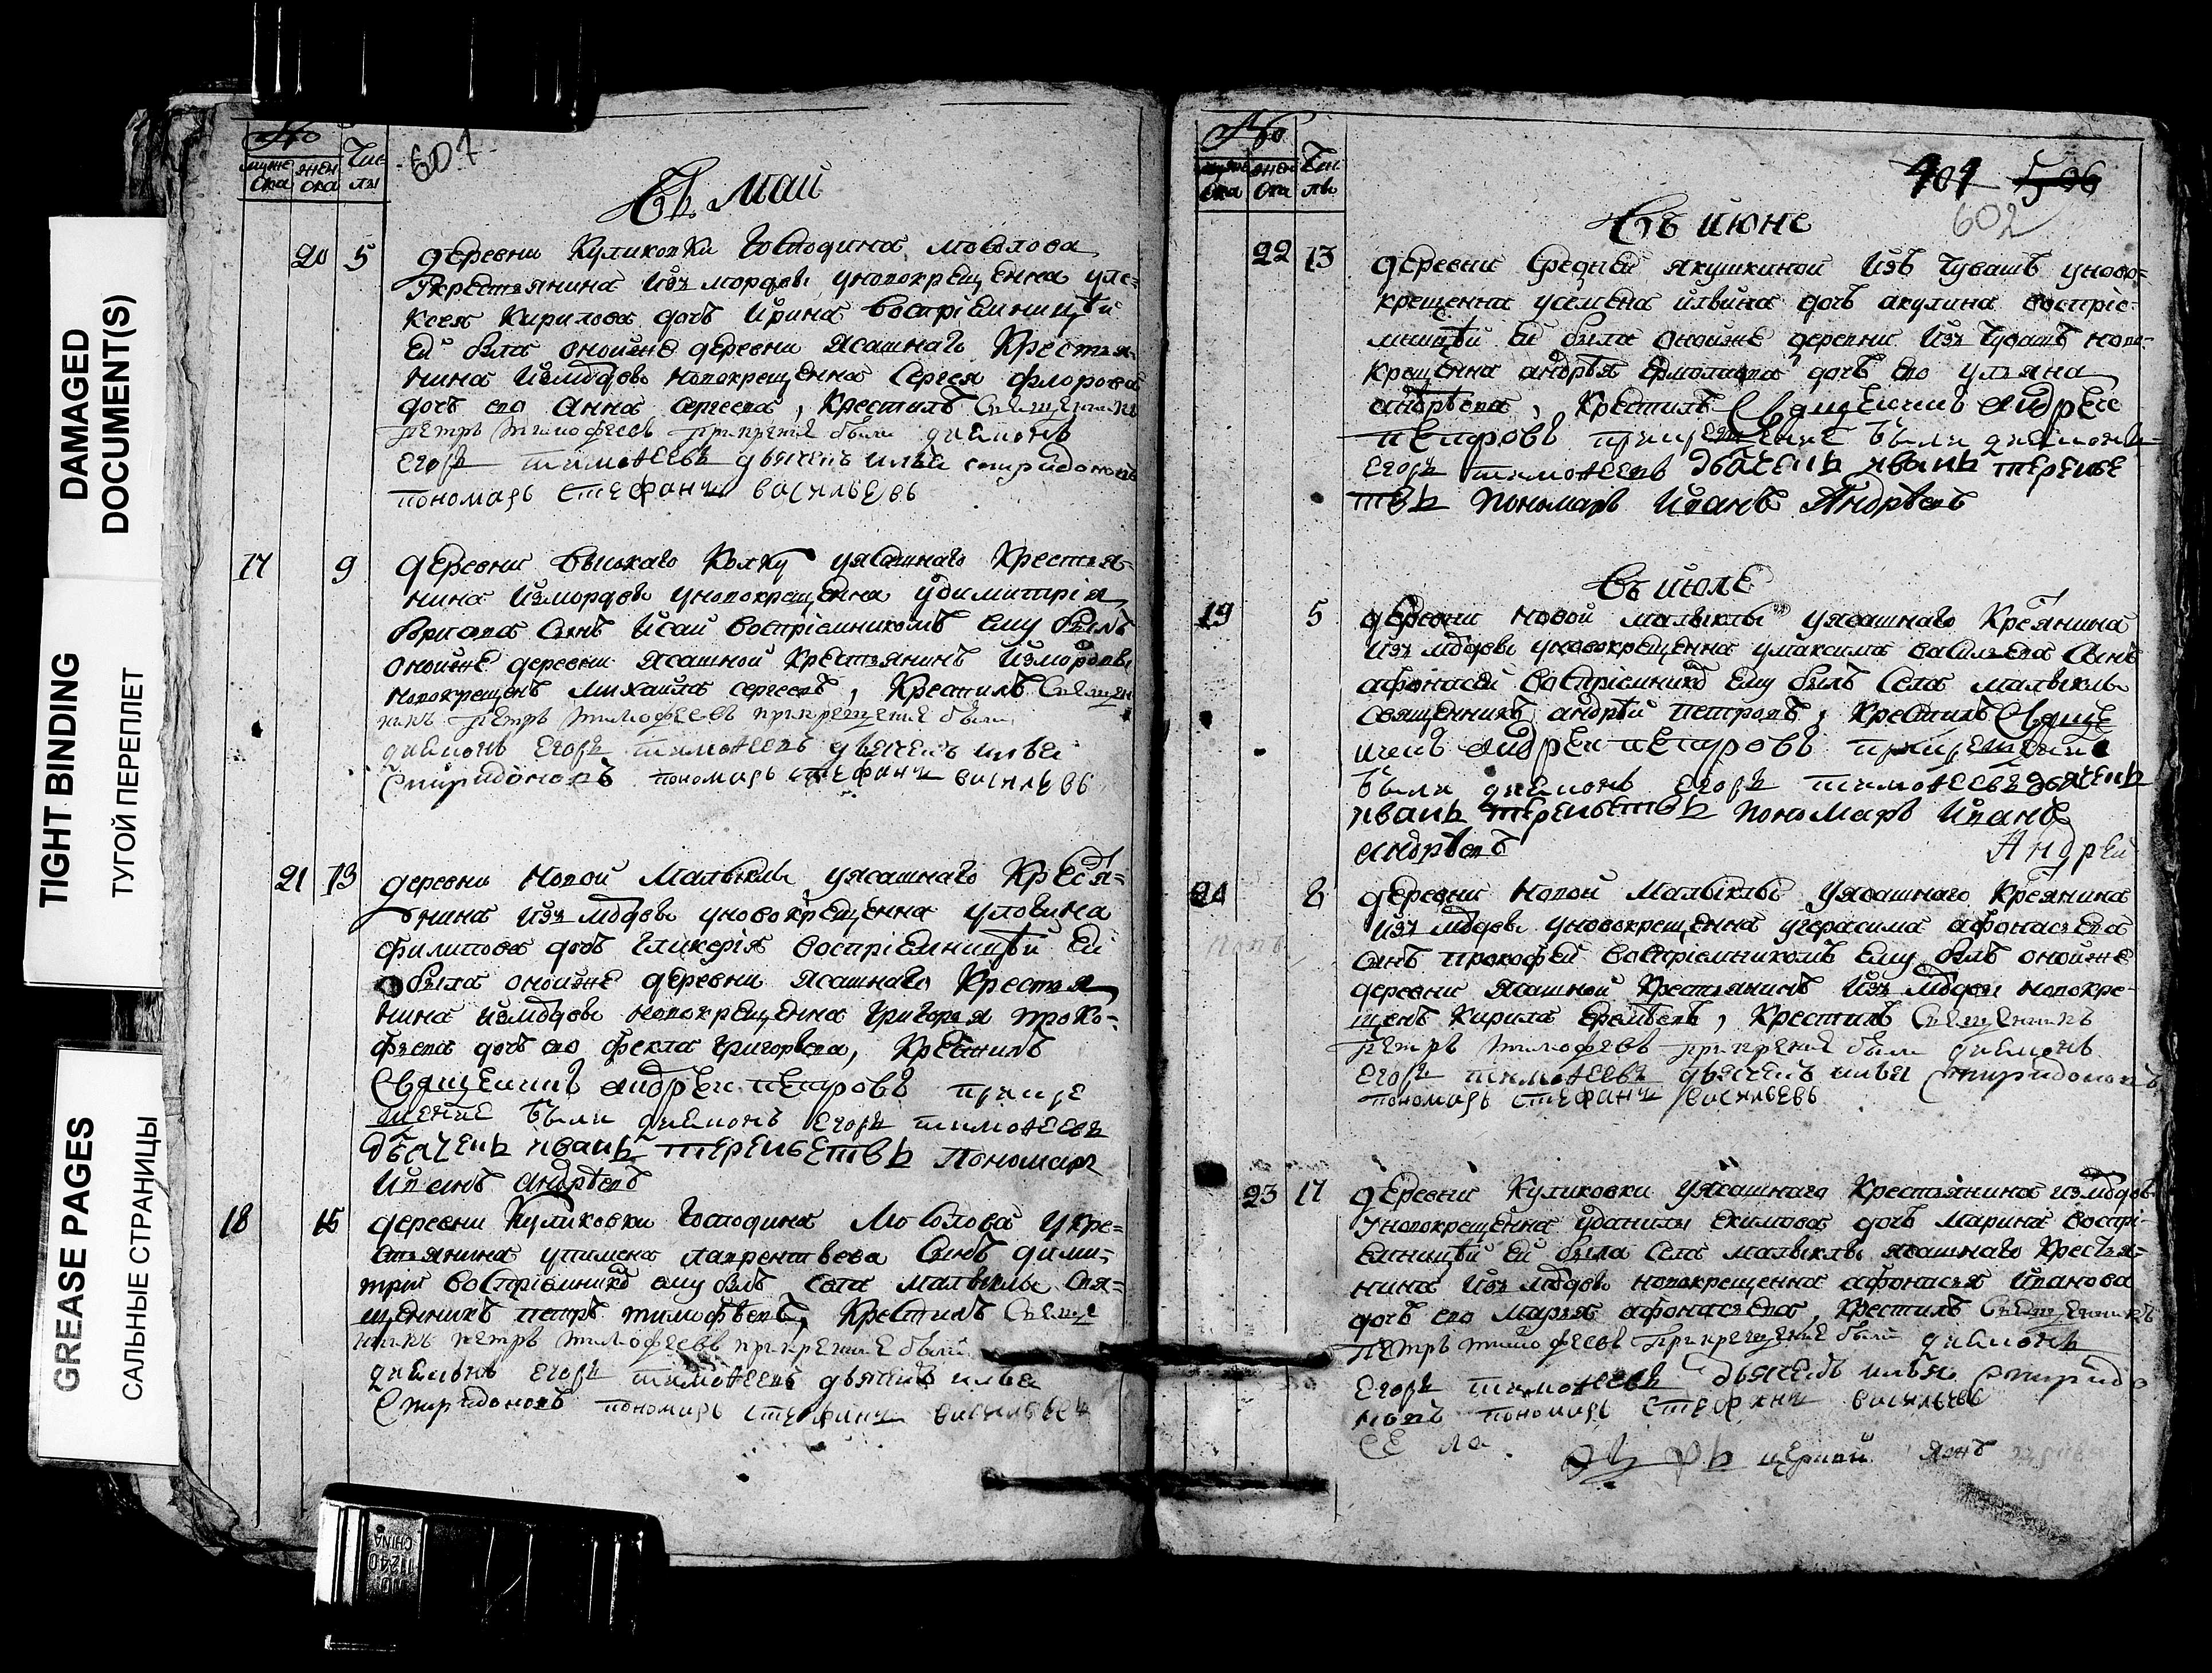 DAMAGED
DOCUMENT(S)
TIGHT BINDING
ТУГОЙ ПЕРЕПЛЕТ
GREASE PAGES
САЛЬНЫЕ СТРАНИЦЫ
№
муже ска
жен ска
Чис лы
601
Въ маи
20 5 деревни Куликовки Господина мосолова
у крестьянина изъ мордвы уновокрещенна уале-
ксея Кирилова дочь Ирина воспрiемницѣй
ей была оной же деревни ясашнаго Крестья-
нина измордвы новокрещенна Сергея флорова
дочь его анна сергеева, Крестилъ Священникъ
петръ тимофеевъ прикрещение были диаконъ
Егоръ тимофеевъ дьячекъ илья спиридоновъ
пономарь стефанъ васильевъ
17 9 деревни высокаго Колку уясашнаго Крестья-
нина измордвы уновокрещенна удимитрiя
Борисова Сынъ Исаи воспрiемникомъ ему былъ
оной же деревни ясашной крестьянинъ измордвы
новокрещенъ михаила сергеевъ, Крестилъ Священ
никъ петръ тимофеевъ прикрещение были
диаконъ Егоръ тимофеевъ дьячекъ илья
Спиридоновъ пономарь стефанъ васильевъ
21 13 деревни новой Малыклы уясашнаго Крестья-
нина изъ мордвы уновокрещенна улогина
филипова дочь гликерiя воспрiемницѣй ей
была оной же деревни ясашнаго Крестья
нина измордвы новокрещенна Григорья проко-
фьева дочь его фекла григорьева, Крестилъ
Священникъ андрей петровъ прикре
щение были диаконъ Егоръ тимофеевъ
дьячекъ иванъ терентьевъ пономарь
Иванъ андрѣевъ
18 15 деревни Куликовки Господина Мосолова укре-
стьянина упимена лаврентьева Сынъ дими-
трiи воспрiемникъ ему былъ села малыклы свя-
щенникъ петръ тимофѣевъ, Крестилъ Свяще
никъ петръ тимофеевъ прикрещение были
диаконъ Егоръ тимофеевъ дьячекъ илья
Спиридоновъ пономарь стефанъ васильевъ
№
муже ска
жен ска
Чис лы
506
602
Въ июне
22 13 деревни Средней якушкиной изъ Чувашъ уново-
крещенна усемена ильина дочь акулина воспрiе-
мницѣй ей была оной же деревни изъ Чувашъ ново-
крещенна андрѣя Ермолаева дочь его ульяна
андрѣева, Крестилъ Священникъ андрей
петровъ прикрещение были диаконъ
Егоръ тимофеевъ дьячекъ иванъ теренье
тевъ пономарь Иванъ Андрѣевъ
Въ июле
19 5 деревни новой малыклы уясашнаго Кресьянина
изъ мордвы уновокрещенна умаксима васильева Сынъ
афонасей воспрiемникъ ему былъ Села малыклы
священникъ андрѣй петровъ, Крестилъ Свяще
никъ андрей петровъ прикрещение
были диаконъ Егоръ тимофеевъ дьячекъ
иванъ терентьевъ пономарь Иванъ
андрѣевъ
Андрей
8 деревни новой Малыклы уясашнаго Кресьянина
изъ мордвы уновокрещенна угерасима афонасьева
сынъ прокофей воспрiемникомъ ему былъ оной же
деревни ясашной Крестьянинъ изъ мордвы новокре-
щенъ Кирила Еремѣевъ, Крестилъ Священникъ
петръ тимофеевъ прикрещение были диаконъ
Егоръ тимофеевъ дьячекъ илья Спиридоновъ
пономарь стефанъ васильевъ
23 17 деревни Куликовки уясашнаго Крестьянина измордвы
уновокрещенна уданилы екимова дочь Марина воспрi-
емницѣй ей была Села малыклы ясашнаго Крестья-
нина изъ мордвы новокрещенна афонасья Иванова
дочь его марья афонасьева, Крестилъ Священникъ
петръ тимофеевъ прикрещение были диаконъ
Егоръ тимофеевъ дьячекъ илья Спиридо
новъ пономарь стефанъ васильевъ
СЕ ла